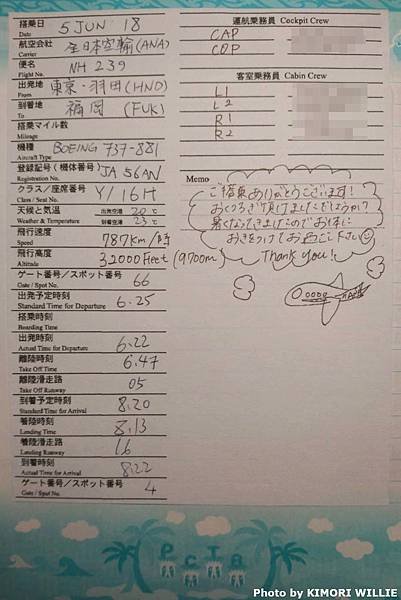 搭乗日 Date 5 JUN '18
航空会社 Carrier 全日本空輸(ANA)
便名 Flight No. NH 239
出発地 From 東京・羽田(HND)
到着地 To 福岡 (FUK)
搭乗マイル数 Mileage
機種 Aircraft Type BOEING 737-881
登録記号(機体番号) Registration No. JA 56AN
クラス/座席番号 Class / Seat No. Y/16H
天候と気温 Weather & Temperature 出発空港 20℃
到着空港 23℃
飛行速度 Speed 787km/時
飛行高度 Altitude 32000Feet (9700m)
ゲート番号/スポット番号 Gate / Spot No. 66
出発予定時刻 Standard Time for Departure 6.25
搭乗時刻 Boarding Time
出発時刻 Actual Time for Departure 6.22
離陸時刻 Take Off Time 6.47
離陸滑走路 Take Off Runway 05
到着予定時刻 Standard Time for Arrival 8.20
着陸時刻 Landing Time 8.13
着陸滑走路 Landing Runway 16
到着時刻 Actual Time for Arrival 8.22
ゲート番号/スポット番号 Gate / Spot No. 4
運航乗務員 Cockpit Crew
CAP
COP
客室乗務員 Cabin Crew
L1
L2
R1
R2
Memo
ご搭乗ありがとうございます!
おくつろぎ頂けましたでしょうか?
暑くなってきますのでお体に
お気をつけてお過ごし下さい
Thank you!
PCTA
Photo by KIMORI WILLIE